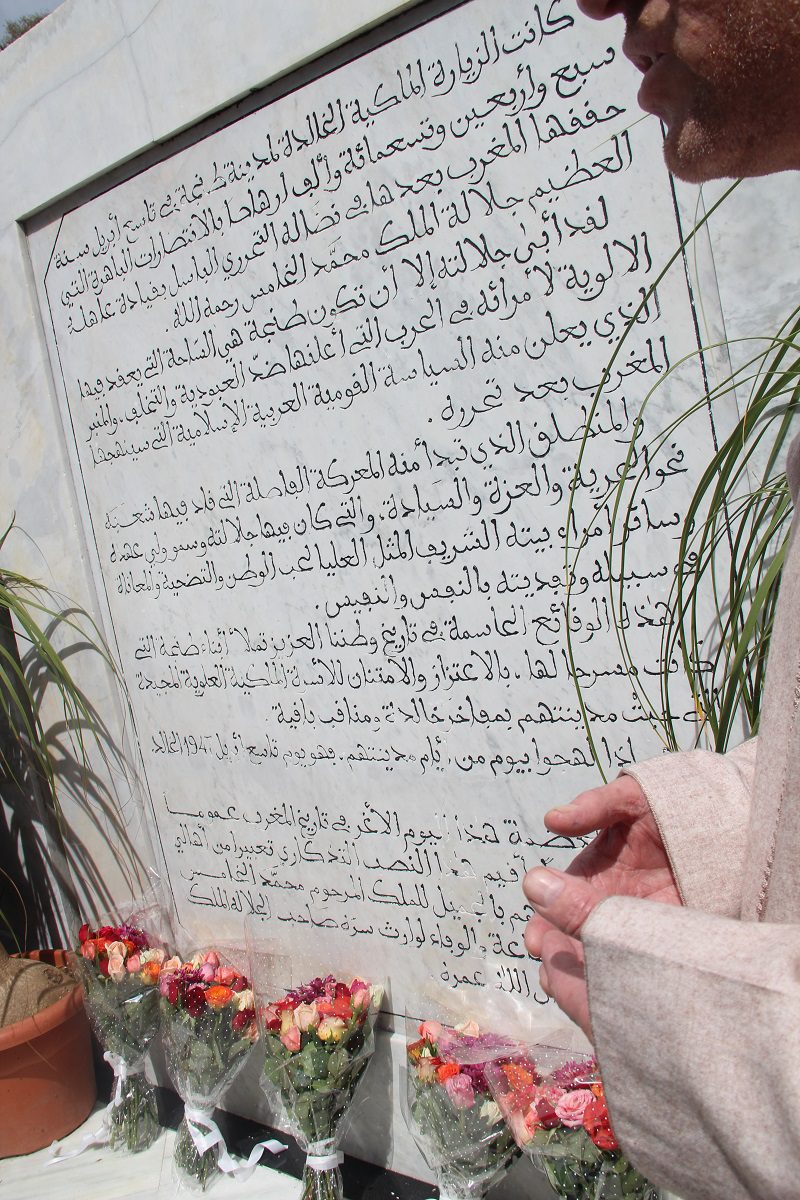 كانت الزيارة الملكية الخالدة لمدينة طنجة في تاسع أبريل سنة
سبع وأربعين وتسعمائة وألف إرهاصا بالانتصارات الباهرة التي
حققها المغرب بعدها في نضاله التحرري الباسل بقيادة عاهله
العظيم جلالة الملك محمد الخامس رحمه الله.
لقد أبى جلالته إلا أن تكون طنجة هي الساحة التي يعقد فيها
الألوية لأمرائه في الحرب التي أعلنها ضد العبودية والتخلف. والمنبر
الذي يعلن منه السياسة القومية العربية الإسلامية التي سينهجها
المغرب بعد تحرره.
والمنطلق الذي تبدأ منه المعركة الفاصلة التي قاد فيها شعبه
نحو الحرية والعزة والسيادة. والتي كان فيها جلالته وسمو ولي عهده
وسائر أمراء بيته الشريف المثل العليا لحب الوطن والتضحية والمعاناة
في سبيله وتفديته بالنفس والنفيس.
هذه الوقائع الحاسمة في تاريخ وطننا العزيز تملأ أبناء طنجة التي
كانت مسرحا لها. بالاعتزاز والامتنان للأسرة الملكية العلوية المجيدة
مدينتهم بمفاخر خالدة ومناقب باقية.
إذا لهجوا بيوم من أيام مدينتهم. فهو يوم تاسع أبريل 1947 الخالد.
هذا اليوم الأغر في تاريخ المغرب عموما
أقيم هذا النصب التذكاري تعبيرا من أهالي
بالجميل للملك المرحوم محمد الخامس
والوفاء لوارث سره صاحب الجلالة الملك
الله عمره.